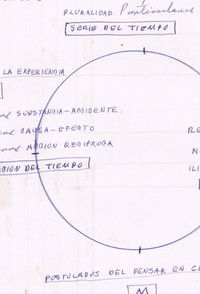 PLURALIDAD Particulares
SERIE DEL TIEMPO
LA EXPERIENCIA
SUBSTANCIA-ACCIDENTE
CAUSA-EFECTO
RE
ACCION RECIPROCA
N
ION DEL TIEMPO
ILI
POSTULADOS DEL PENSAR EN GE
M